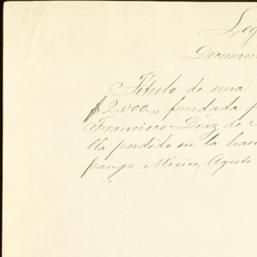 Leg
Documen
Título de una
$2,000.,, fundada p
Francisco Díaz de
lla perdido en la hac
pango, Mexico, Agosto